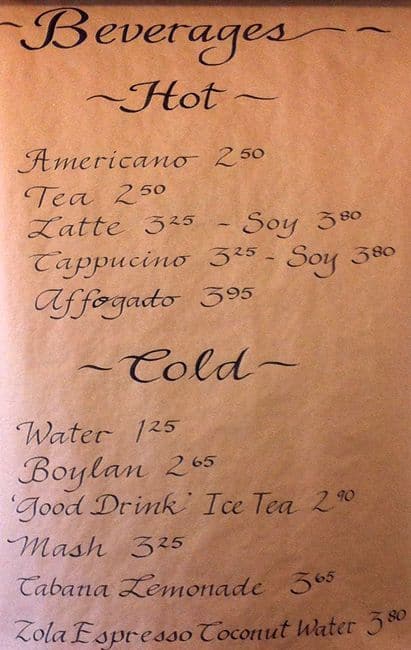 ~Beverages~ ~
~Hot~
Americano 2 50
Tea 2 50
Latte 3 25 - Soy 3 80
Cappucino 3 25 - Soy 3 80
Affogado 3 95
~Cold~
Water 1 25
Boylan 2 65
'Good Drink' Ice Tea 2 90
Mash 3 25
Cabana Lemonade 3 65
Zola Espresso Coconut Water 3 80